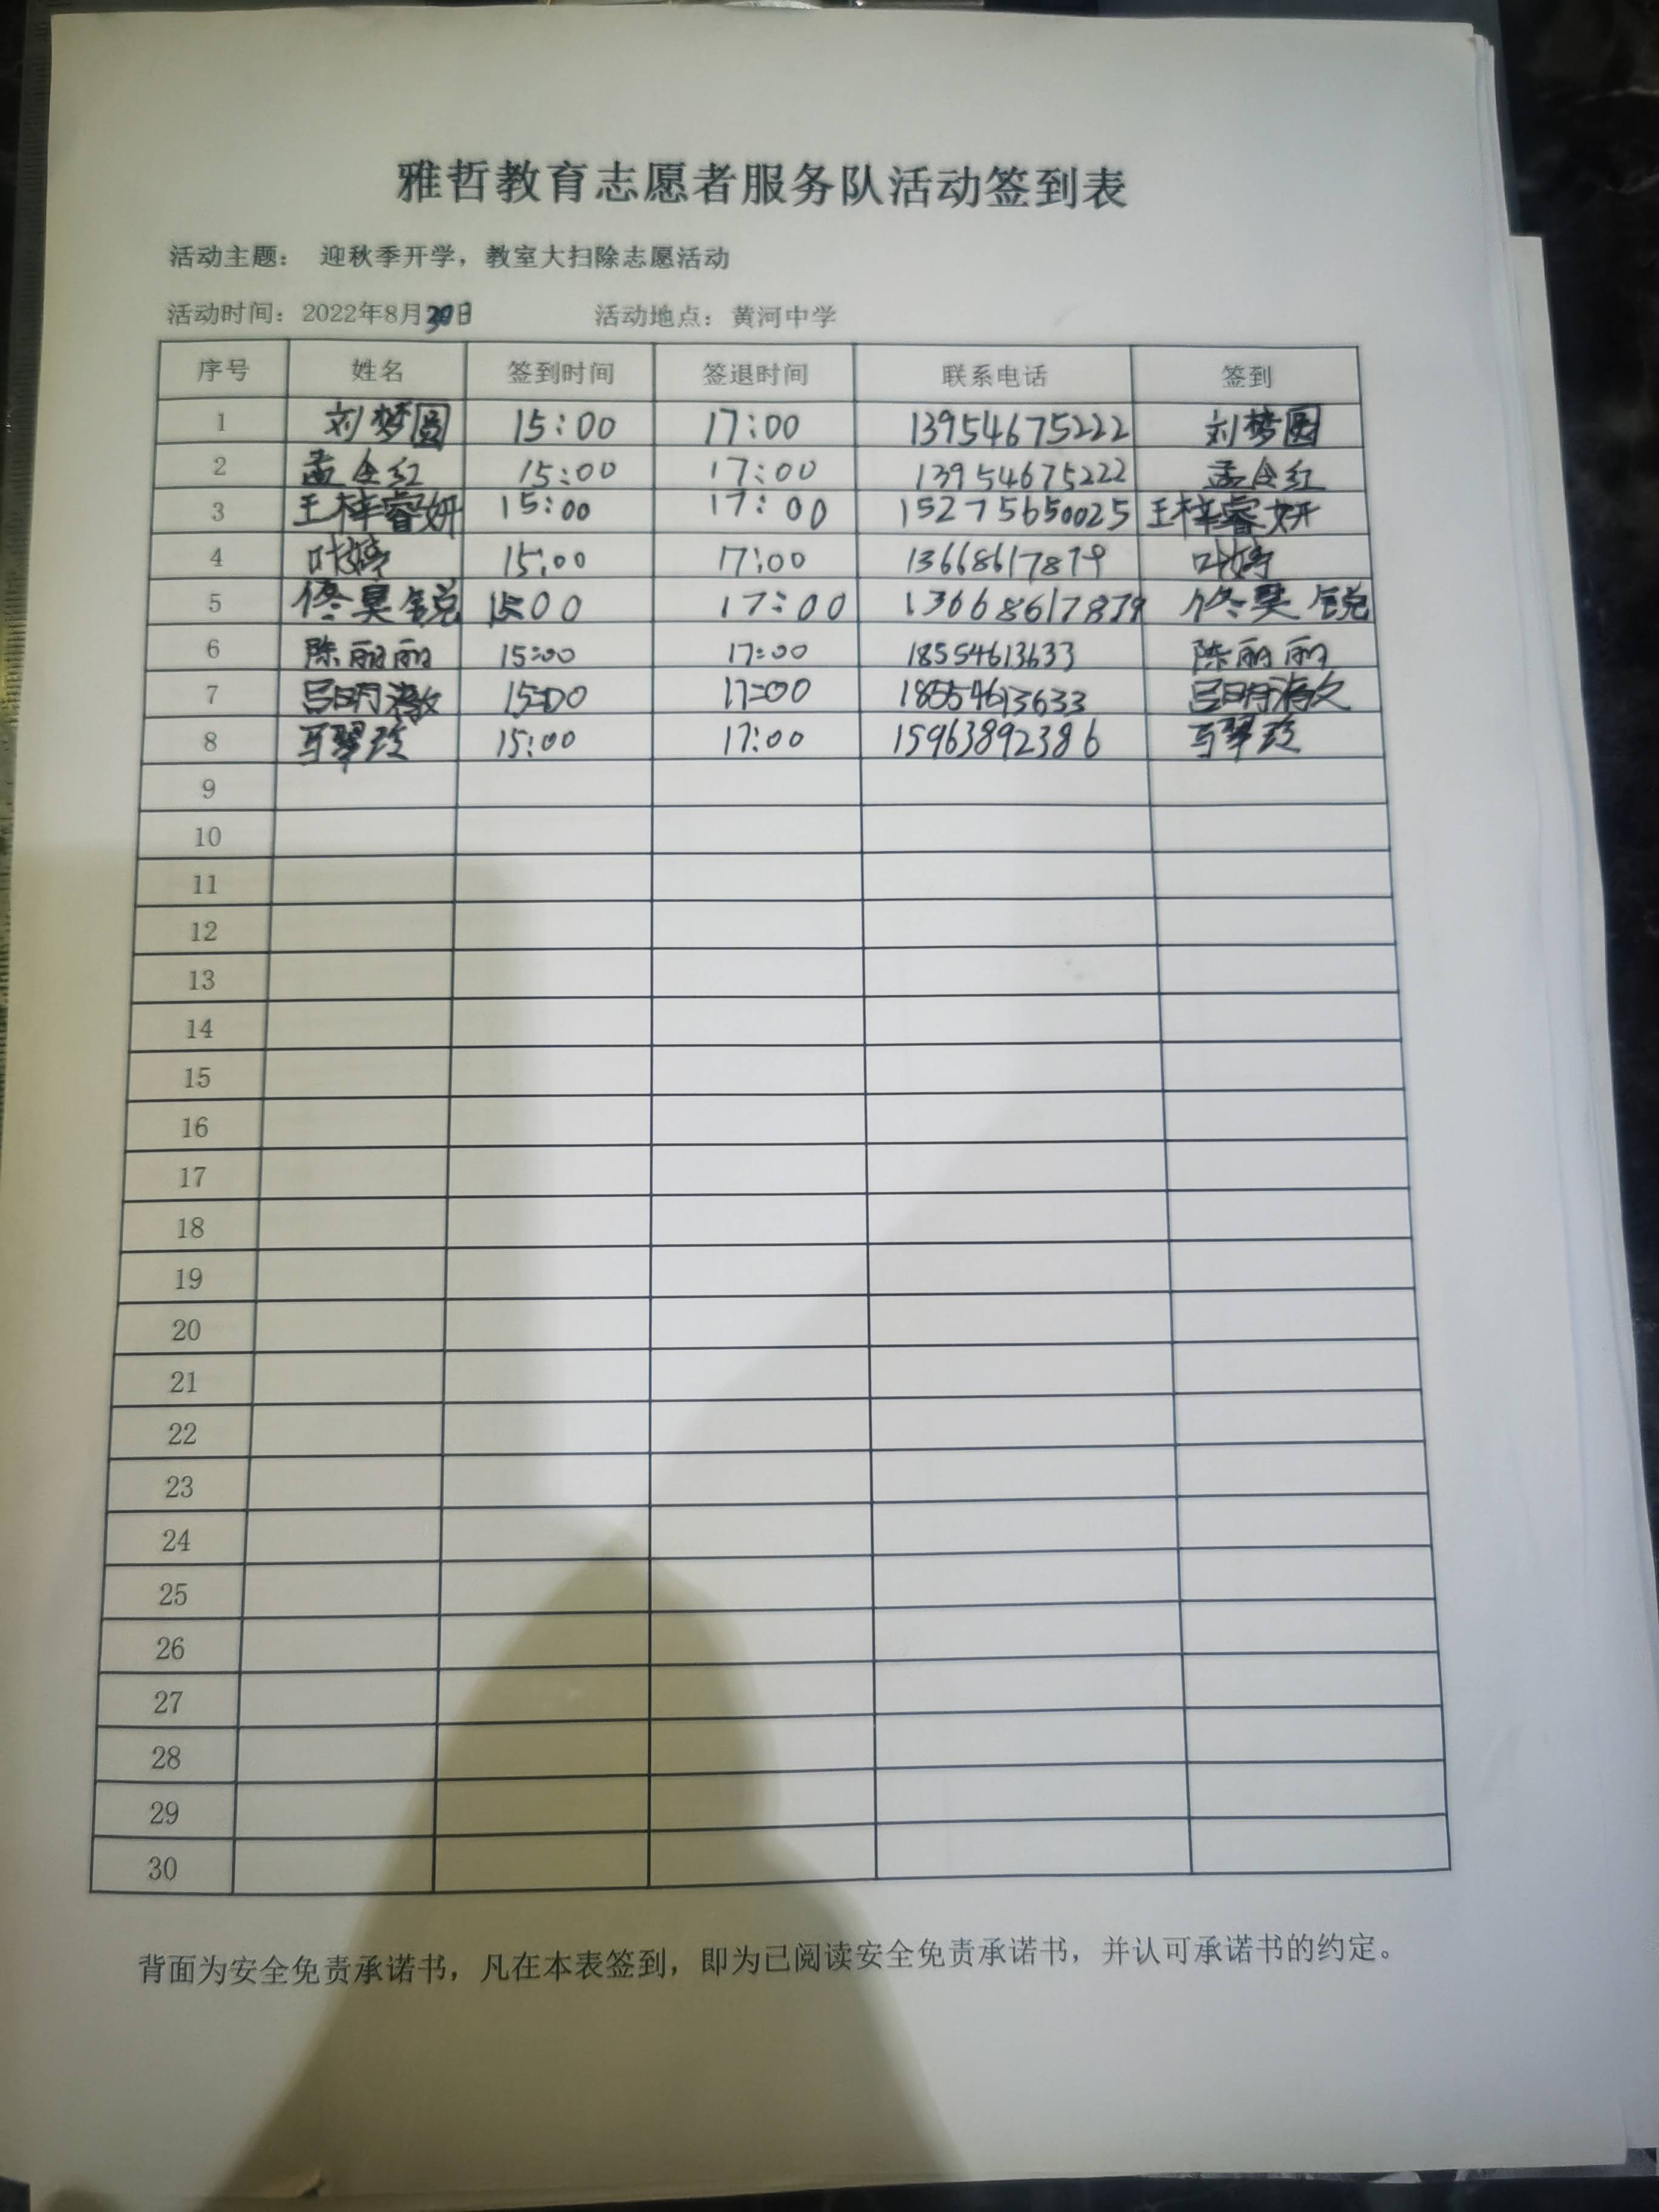 雅哲教育志愿者服务队活动签到表
活动主题： 迎秋季开学，教室大扫除志愿活动
活动时间：2022年8月30日 活动地点：黄河中学
序号 姓名 签到时间 签退时间 联系电话 签到
1 刘梦圆 15:00 17:00 13954675222 刘梦圆
2 孟令红 15:00 17:00 13954675222 孟令红
3 王梓睿妍 15:00 17:00 15275650025 王梓睿妍
4 叶婷 15:00 17:00 13668617879 叶婷
5 佟昊锐 15:00 17:00 13668617879 佟昊锐
6 陈丽丽 15:00 17:00 18554613633 陈丽丽
7 吕明 15:00 17:00 18554613633 吕明
8 马翠玲 15:00 17:00 15963892386 马翠玲
9
10
11
12
13
14
15
16
17
18
19
20
21
22
23
24
25
26
27
28
29
30
背面为安全免责承诺书，凡在本表签到，即为已阅读安全免责承诺书，并认可承诺书的约定。